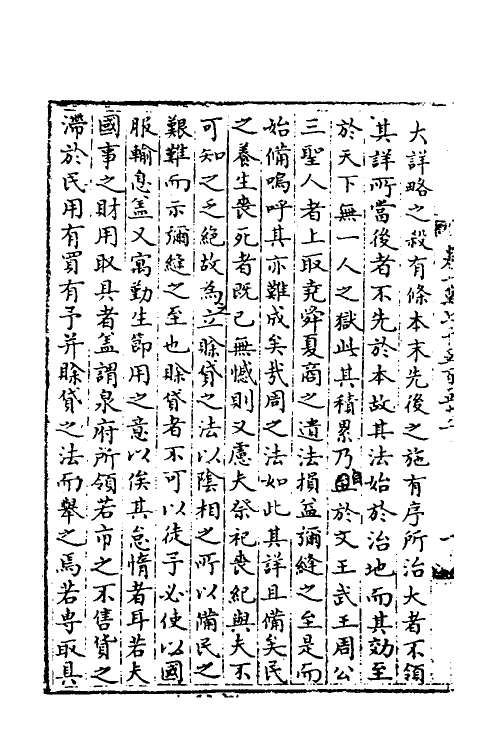 大詳略之殺有條本末先後之施有序所治大者不領
其詳所當後者不先於本故其法始於治地而其効至
於天下無一人之獄此其積累乃自於文王武王周公
三聖人者上取堯舜夏商之遺法損益彌縫之至是而
始備嗚呼其亦難成矣哉周之法如此其詳且備矣民
之養生喪死者既已無憾則又慮夫祭祀喪紀與夫不
可知之乏絶故為之立賖貸之法以陰相之所以備民之
艱難而示彌縫之至也賖貸者不可以徒予必使以國
服輸息盖又寓勤生節用之意以俟其怠惰者耳若夫
國事之財用取具者盖謂泉府所領若市之不售貨之
滯於民用有買有予并賖貸之法而舉之焉若専取具